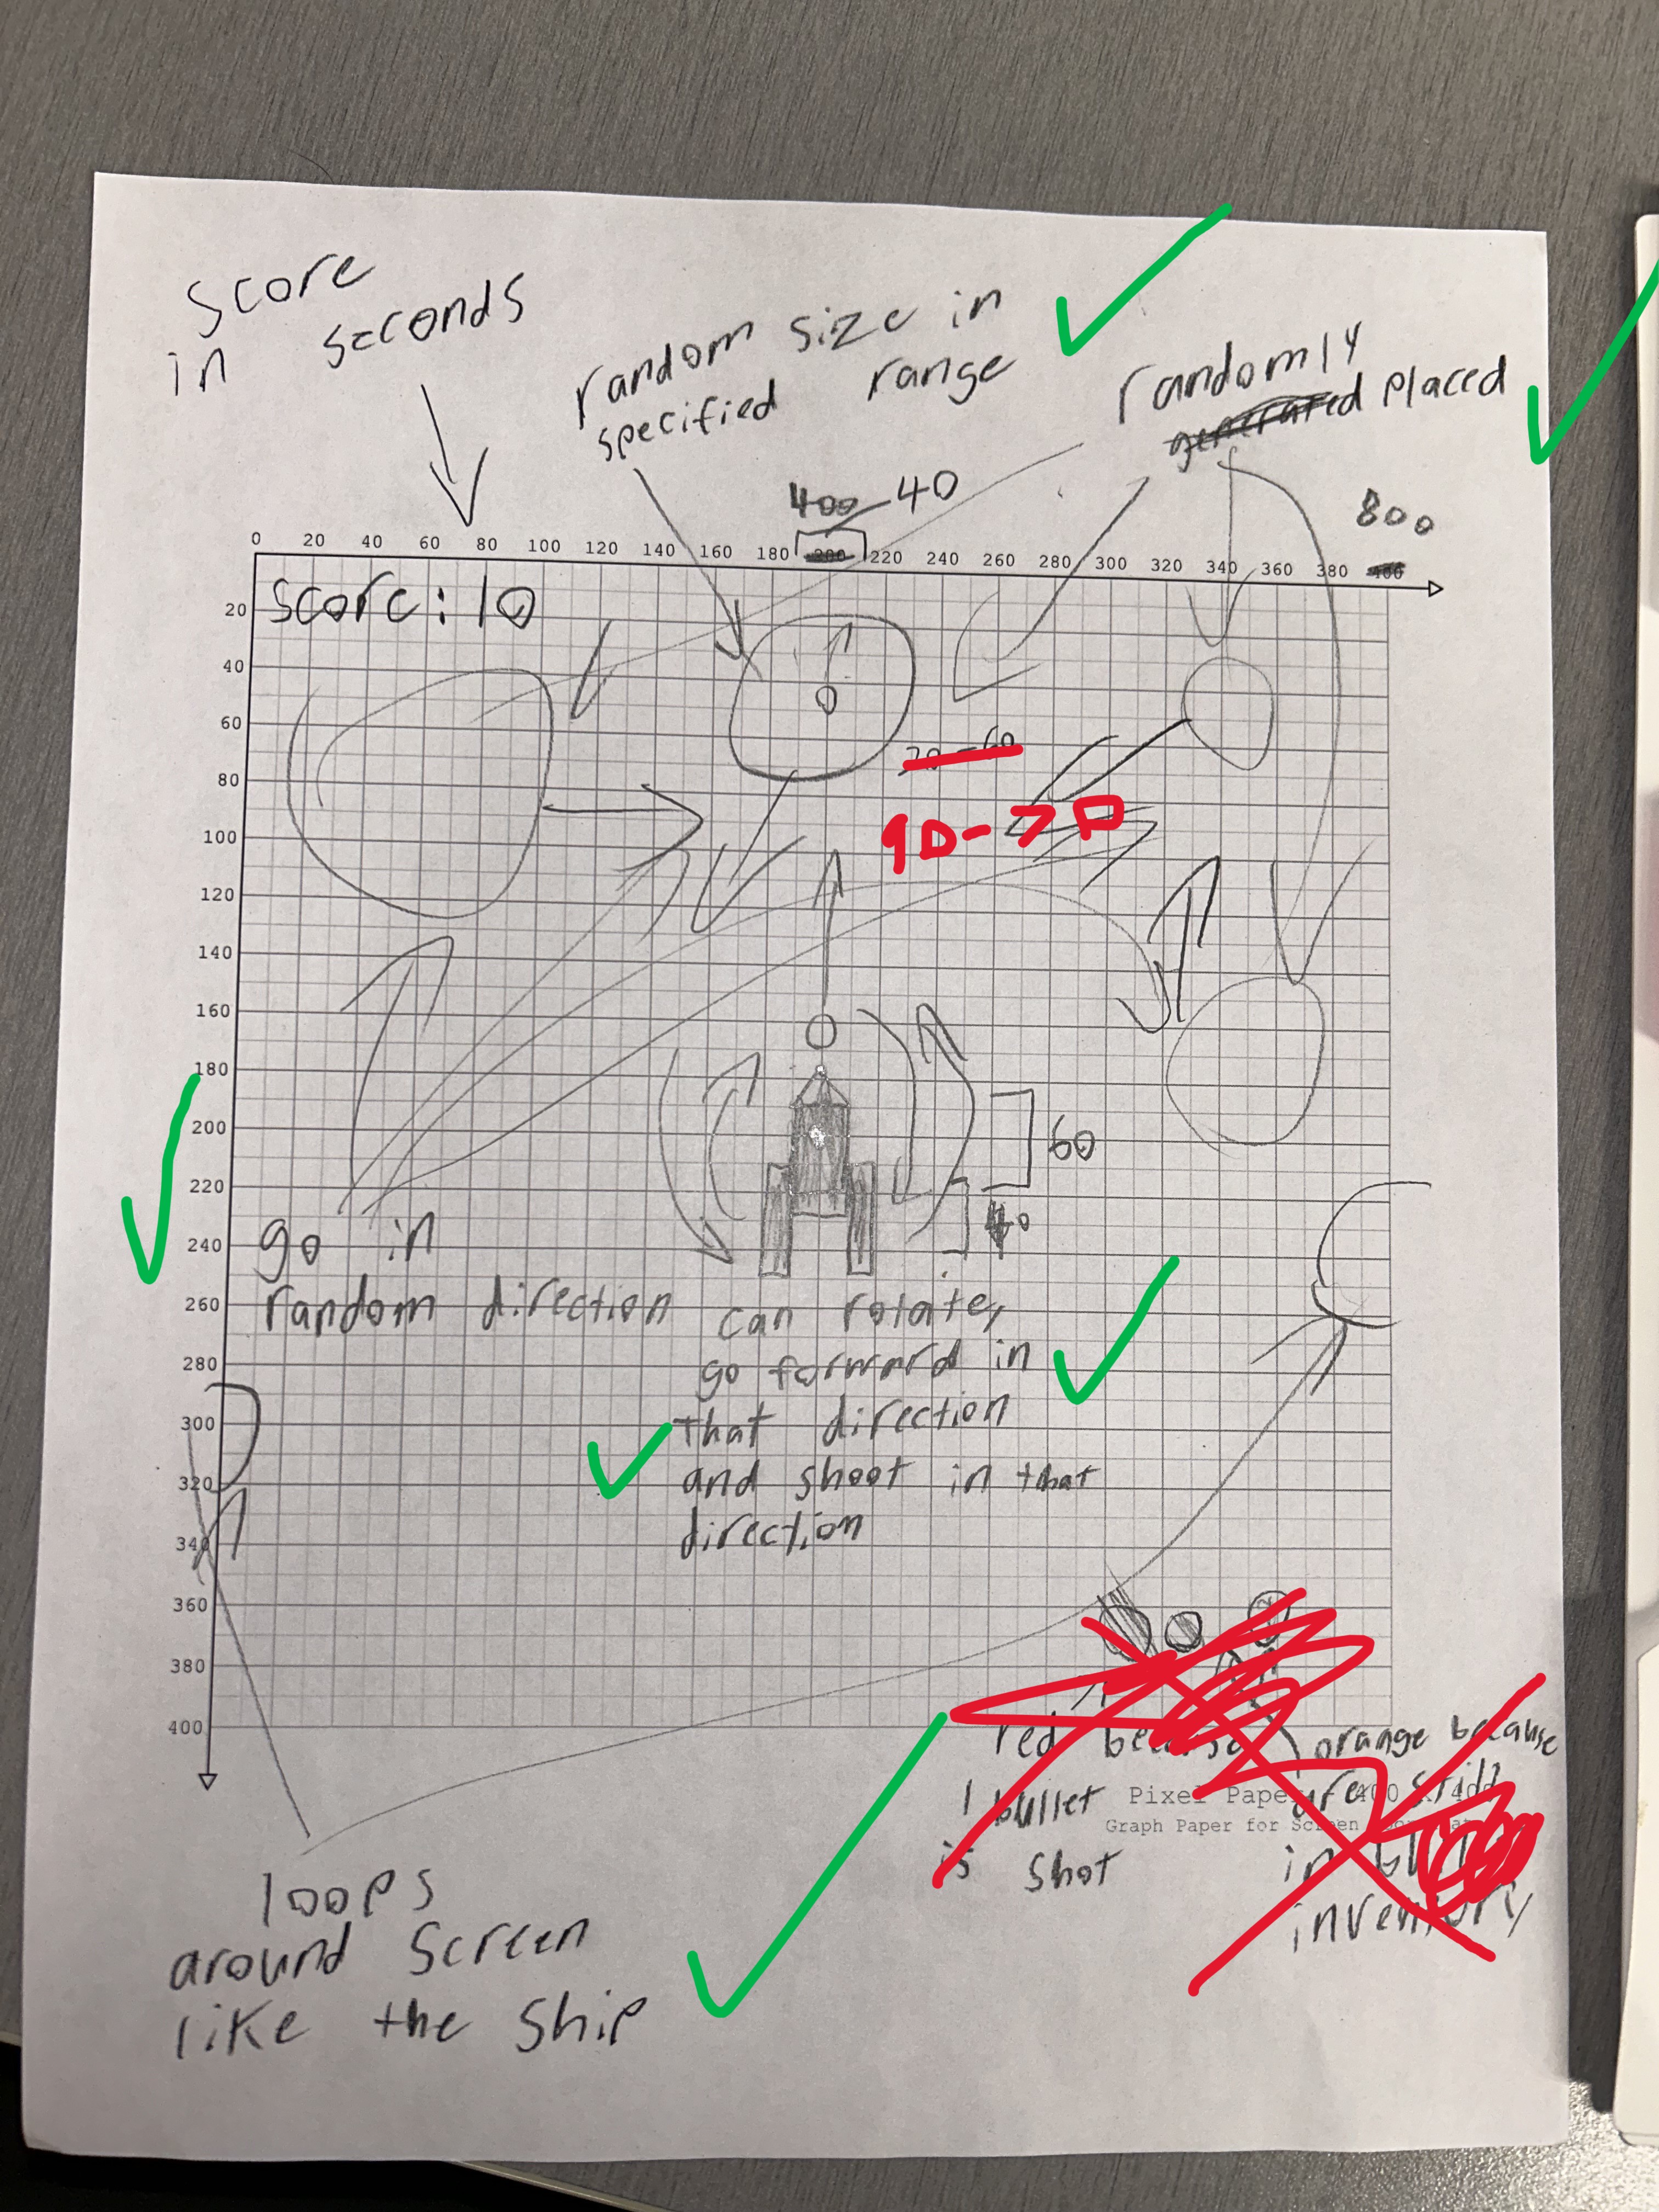 Score
in seconds
random size in
specified range
randomly
generated placed
400 40
800
0 20 40 60 80 100 120 140 160 180 200 220 240 260 280 300 320 340 360 380 400
Score: 10
20
40
60
80
100
120
140
160
180
200
220
240
260
280
300
320
340
360
380
400
60
40
go in
random direction
can rotate,
go forward in
that direction
and shoot in that
direction
red because
1 bullet
is shot
orange because
are still
in
inventory
Pixel Paper 400 x 400
Graph Paper for Screen
loops
around screen
like the ship